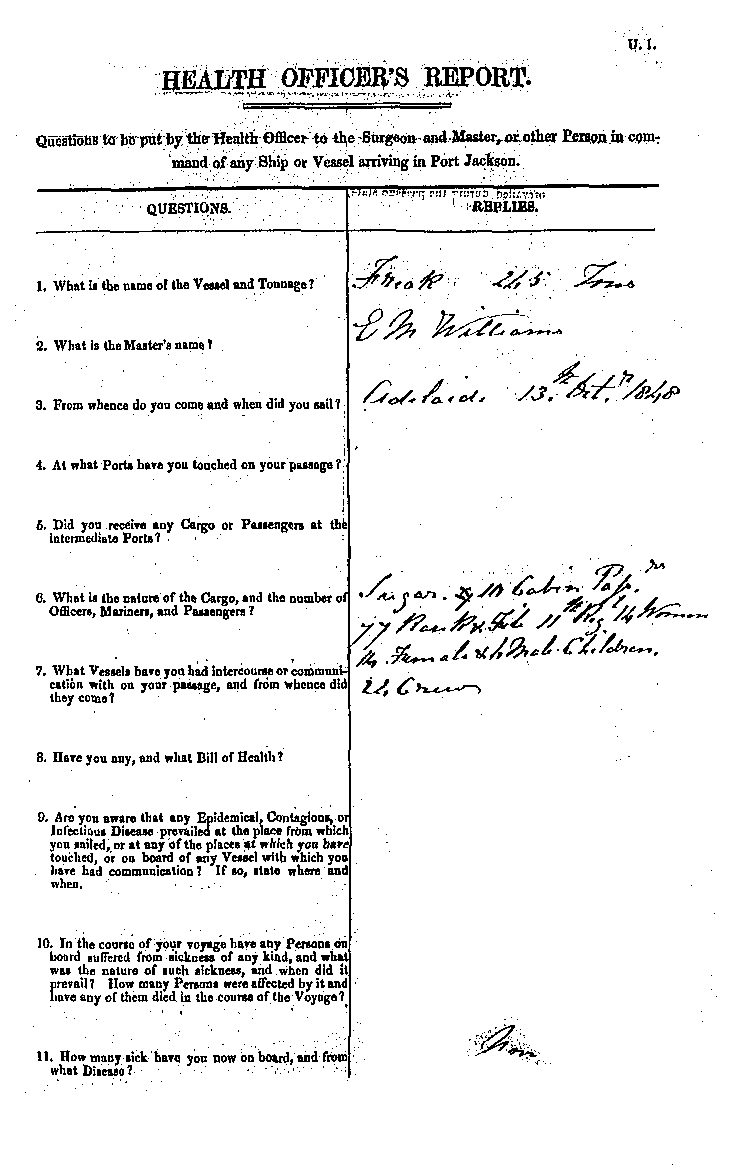 U. 1.
HEALTH OFFICER'S REPORT.
Questions to be put by the Health Officer to the Surgeon and Master, or other Person in com-
mand of any Ship or Vessel arriving in Port Jackson.
QUESTIONS.
REPLIES.
1. What is the name of the Vessel and Tonnage?
Freak 245 Tons
2. What is the Master's name?
E M Williams
3. From whence do you come and when did you sail?
Adelaide 13th Octr 1848
4. At what Ports have you touched on your passage?
5. Did you receive any Cargo or Passengers at the
intermediate Ports?
6. What is the nature of the Cargo, and the number of
Officers, Mariners, and Passengers?
Sugar. Cabin Pasrs
77 Rank & File 11th Regt 14 Women
14 Female & 4 Male Children.
Crew
7. What Vessels have you had intercourse or communi-
cation with on your passage, and from whence did
they come?
8. Have you any, and what Bill of Health?
9. Are you aware that any Epidemical, Contagious, or
Infectious Disease prevailed at the place from which
you sailed, or at any of the places at which you have
touched, or on board of any Vessel with which you
have had communication? If so, state where and
when.
10. In the course of your voyage have any Persons on
board suffered from sickness of any kind, and what
was the nature of such sickness, and when did it
prevail? How many Persons were affected by it and
have any of them died in the course of the Voyage?
11. How many sick have you now on board, and from
what Disease?
Non